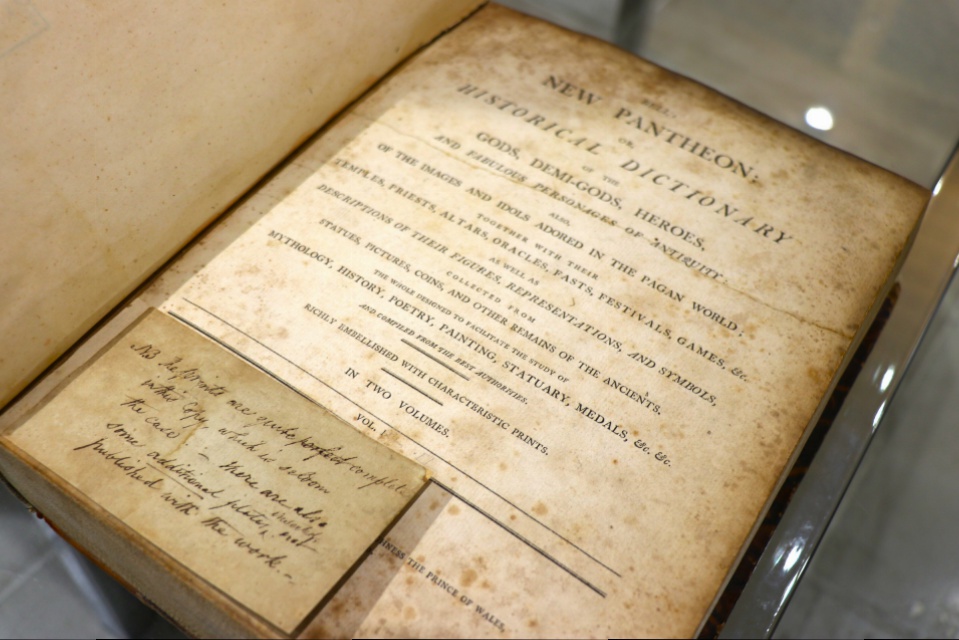 BELL'S
NEW PANTHEON;
OR,
HISTORICAL DICTIONARY
OF THE
GODS, DEMI-GODS, HEROES,
AND FABULOUS PERSONAGES OF ANTIQUITY
ALSO,
OF THE IMAGES AND IDOLS ADORED IN THE PAGAN WORLD;
TOGETHER WITH THEIR
TEMPLES, PRIESTS, ALTARS, ORACLES, FASTS, FESTIVALS, GAMES, &c.
AS WELL AS
DESCRIPTIONS OF THEIR FIGURES, REPRESENTATIONS, AND SYMBOLS,
COLLECTED FROM
STATUES, PICTURES, COINS, AND OTHER REMAINS OF THE ANCIENTS.
THE WHOLE DESIGNED TO FACILITATE THE STUDY OF
MYTHOLOGY, HISTORY, POETRY, PAINTING, STATUARY, MEDALS, &c. &c.
AND COMPILED FROM THE BEST AUTHORITIES.
RICHLY EMBELLISHED WITH CHARACTERISTIC PRINTS.
IN TWO VOLUMES.
VOL.
NB The Prints are quite perfect & complete
in this Copy, which is seldom
the case — there are also
some additional plates, not
published with the work.
THE PRINCE OF WALES.